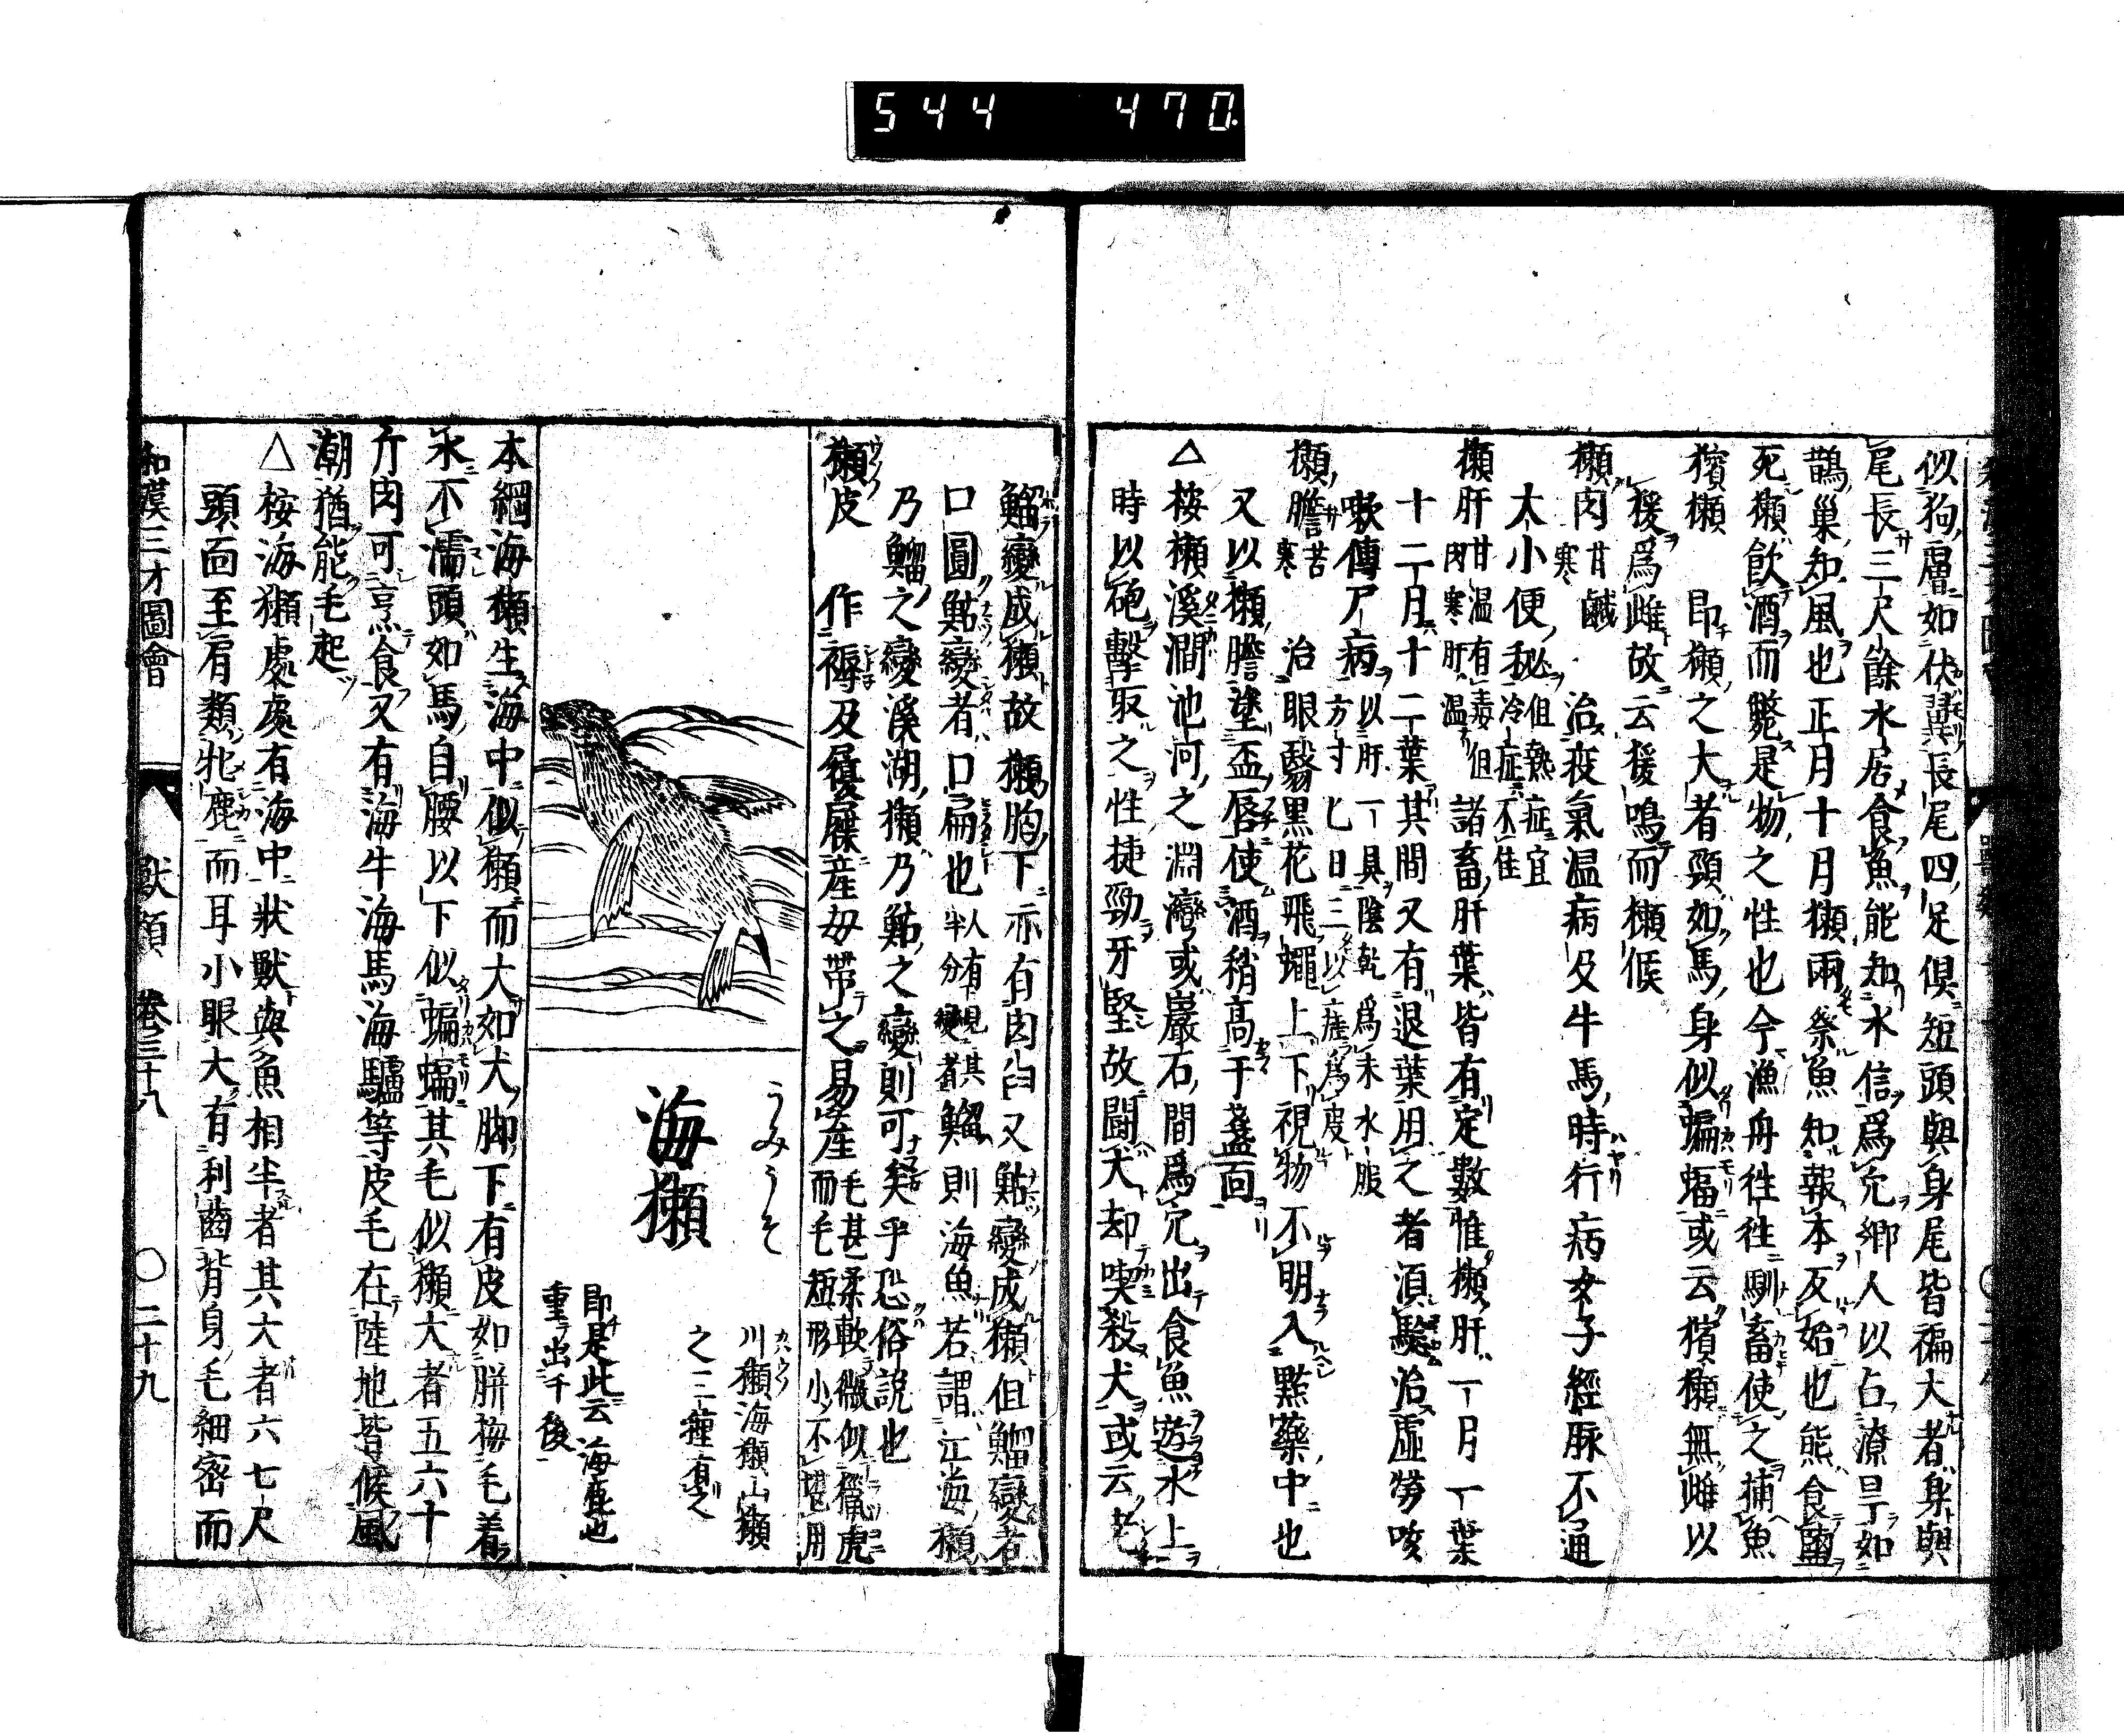 544 470
似狗膚如伏翼長尾四足倶短頭與身尾皆褊大者身與
尾長三尺餘水居食魚能知水信爲穴鄉人以占潦旱如
鵲巢知風也正月十月獺兩祭魚知報本反始也熊食鹽
死獺飮酒而斃是物之性也今漁舟徃徃馴畜使之捕魚
獱獺 即獺之大者頸如馬身似蝙蝠或云獱獺無雌以
猨爲雌故云猨鳴而獺候
獺肉 甘鹹寒 治疫氣温病及牛馬時行病女子經脉不通
大小便秘 但熱症宜冷症不佳
獺肝 甘温有毒但肉寒肝温 諸畜肝葉皆有定數惟獺肝一月一葉
十二月十二葉其間又有退葉用之者須驗治虛勞咳
嗽傳尸病 以肝一具陰乾爲末水服方寸匕日三
獺膽 苦寒 治眼翳黒花飛蠅上下視物不明入㸃藥中也
又以獺膽塗盃唇使酒稍高于盞面
△按獺溪澗池河之淵灣或巖石間爲穴出食魚遊水上
時以砲擊取之性捷勁牙堅故鬪犬却喫殺犬或云老
鰡變成獺故獺胸下亦有肉臼又鮎變成獺但鰡變者
口圓鮎變者口扁也 人有見其半分變者 鰡則海魚若謂江海獺
乃鰡之變溪湖獺乃鮎之變則可矣乎恐俗說也
獺皮 作褥及履屧産母帶之易産 毛甚柔軟微似獵虎而毛短形小不堪用
うみうそ
海獺
川獺海獺山獺
之三種有之
即是此云海鹿也
重出于後
本綱海獺生海中似獺而大如犬脚下有皮如胼拇毛着
水不濡頭如馬自腰以下似蝙蝠其毛似獺大者五六十
斤肉可烹食又有海牛海馬海驢等皮毛在陸地皆候風
潮猶能毛起
△按海獺處處有海中狀獸與魚相半者其大者六七尺
頭面至肩類牝鹿而耳小眼大有利齒背身毛細密而
和漢三才圖會 獸類 卷三十八 〇二十九